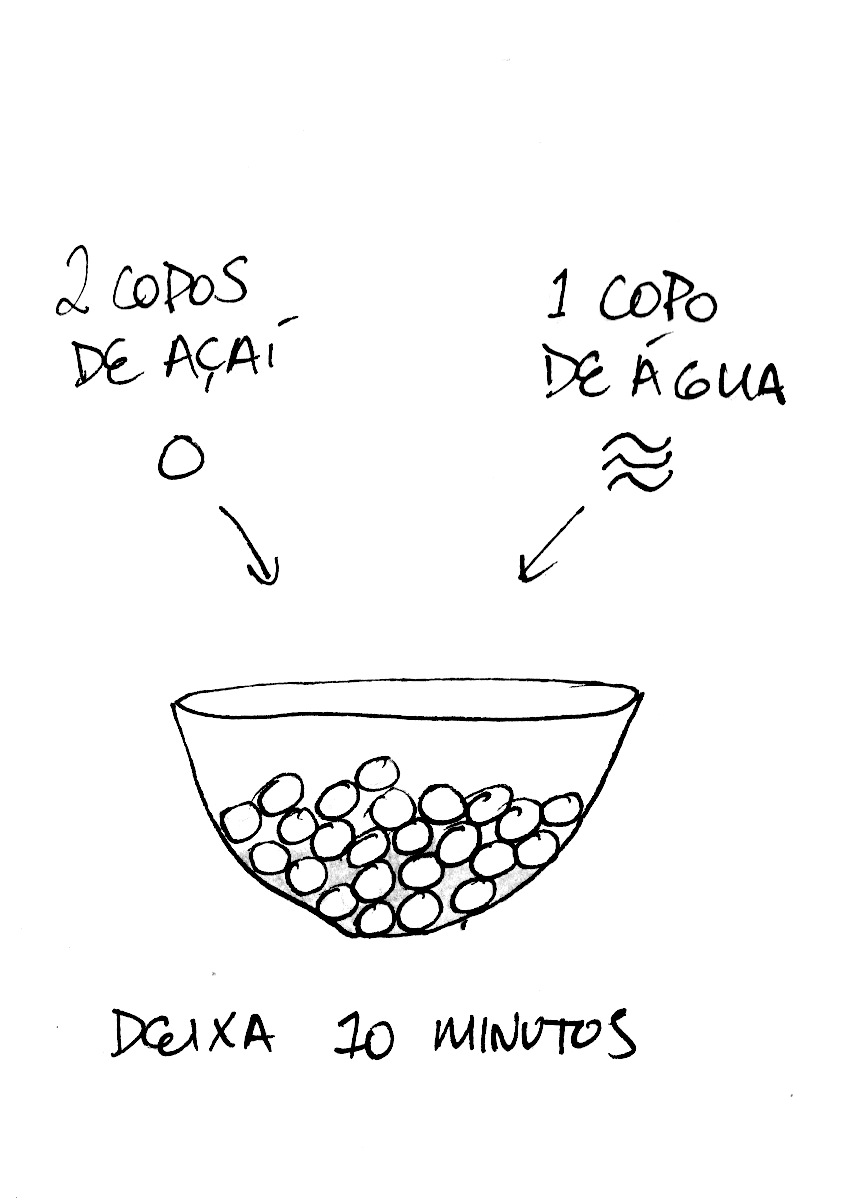 2 COPOS
DE AÇAÍ
1 COPO
DE ÁGUA
DEIXA 10 MINUTOS